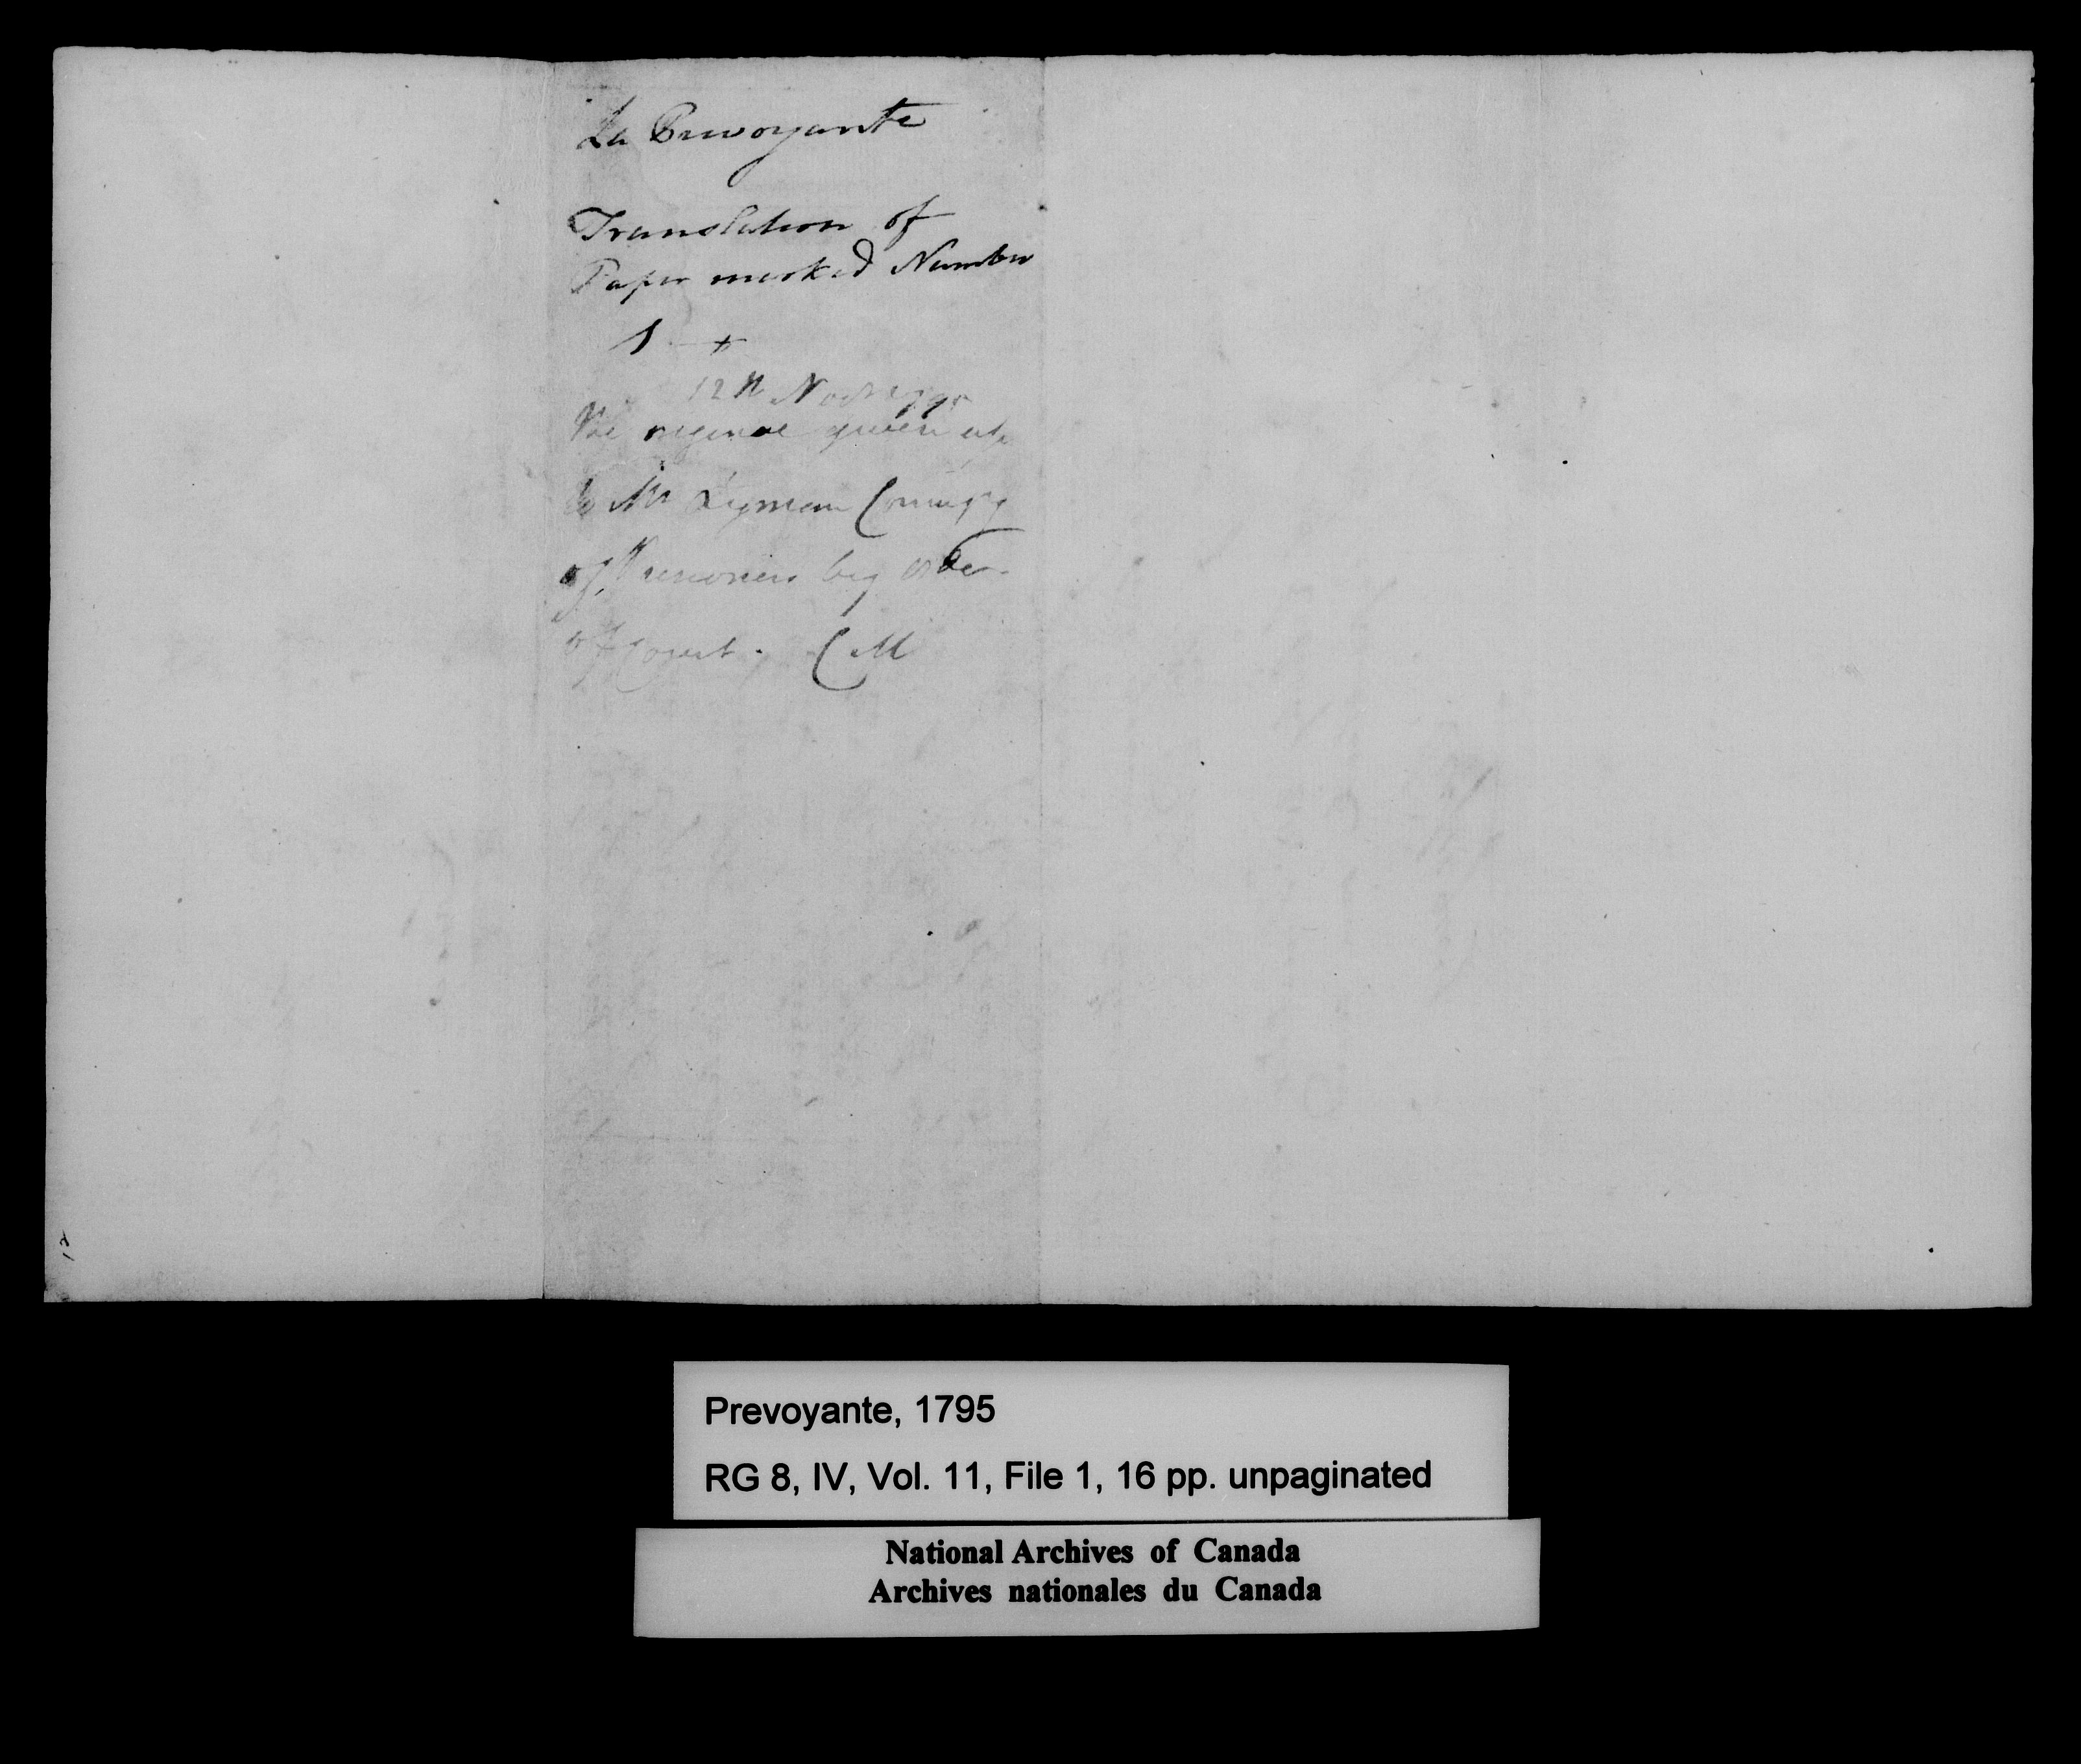 La Prevoyante
Translation of
Paper marked Number
1
12th Novr 1795
The original given up
to Mr Lyman
of Prisoners by order
of Court. CM
Prevoyante, 1795
RG 8, IV, Vol. 11, File 1, 16 pp. unpaginated
National Archives of Canada
Archives nationales du Canada